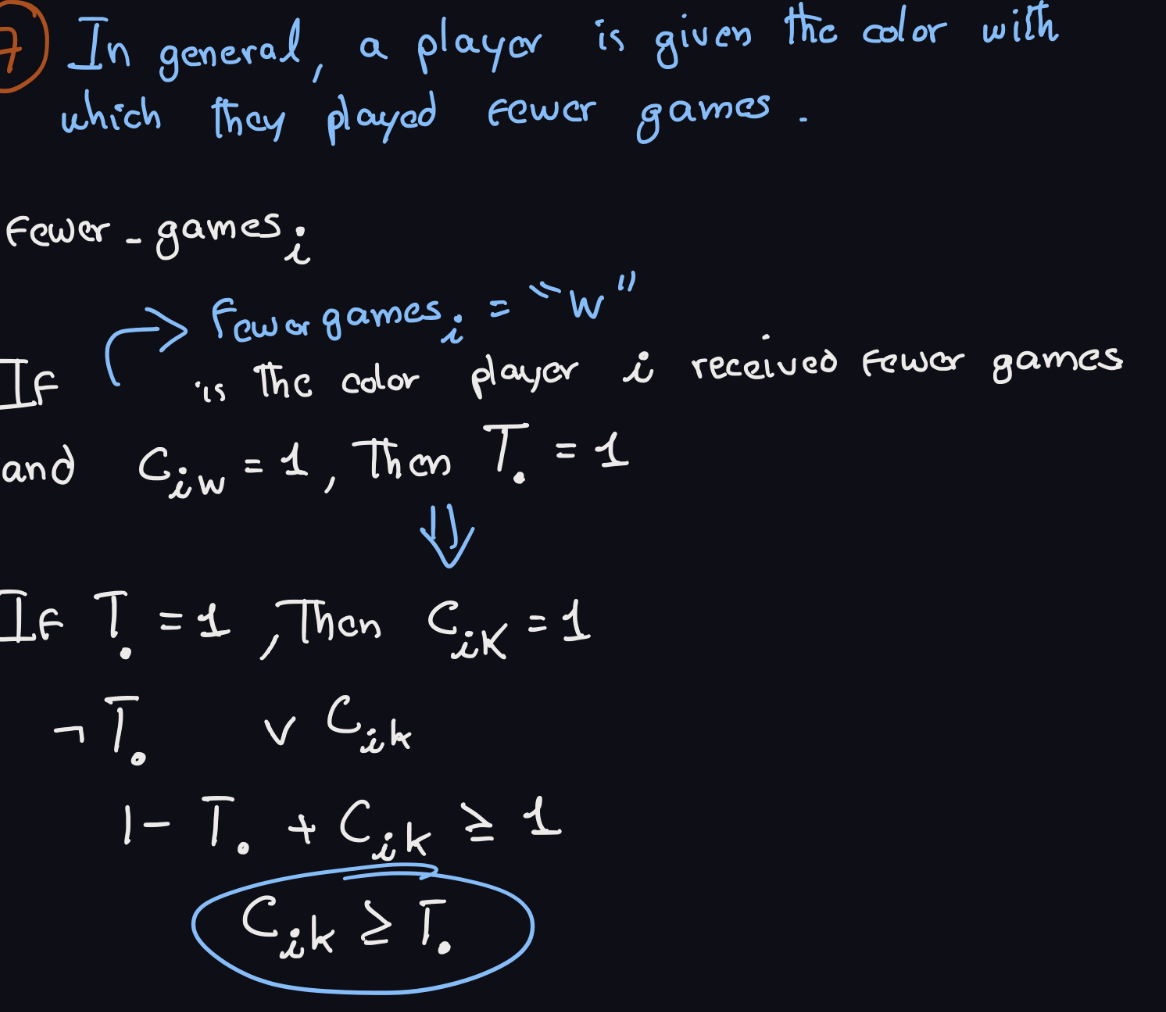 7 In general, a player is given the color with
which they played fewer games.
Fewer-games_i
Fewergames_i = "W"
If is the color player i received fewer games
and C_iw = 1, Then T. = 1
⇓
If T. = 1, Then C_ik = 1
¬ T. ∨ C_ik
1 - T. + C_ik ≥ 1
C_ik ≥ T.